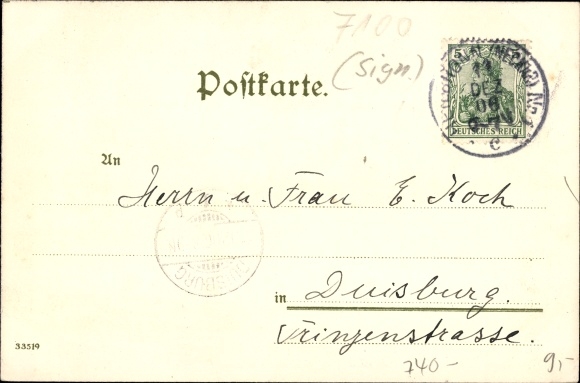 7100
(Sign.)
Postkarte.
5
14
DEZ
06
DEUTSCHES REICH
c
An
Herrn u. Frau E. Koch
DUISBURG
in Duisburg.
Prinzenstrasse.
33519
740-
9,-